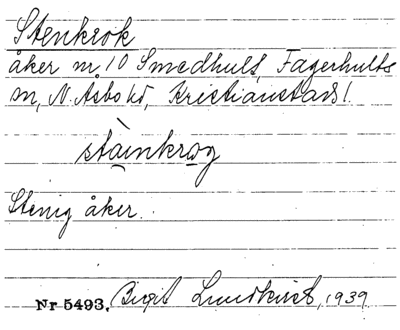 Stenkrok
åker nr 10 Smedhult, Fagerhults
sn, N. Åsbo hd, Kristianstads l.
stäinkrog
Stenig åker.
Nr 5493. Birgit Lundkvist, 1939